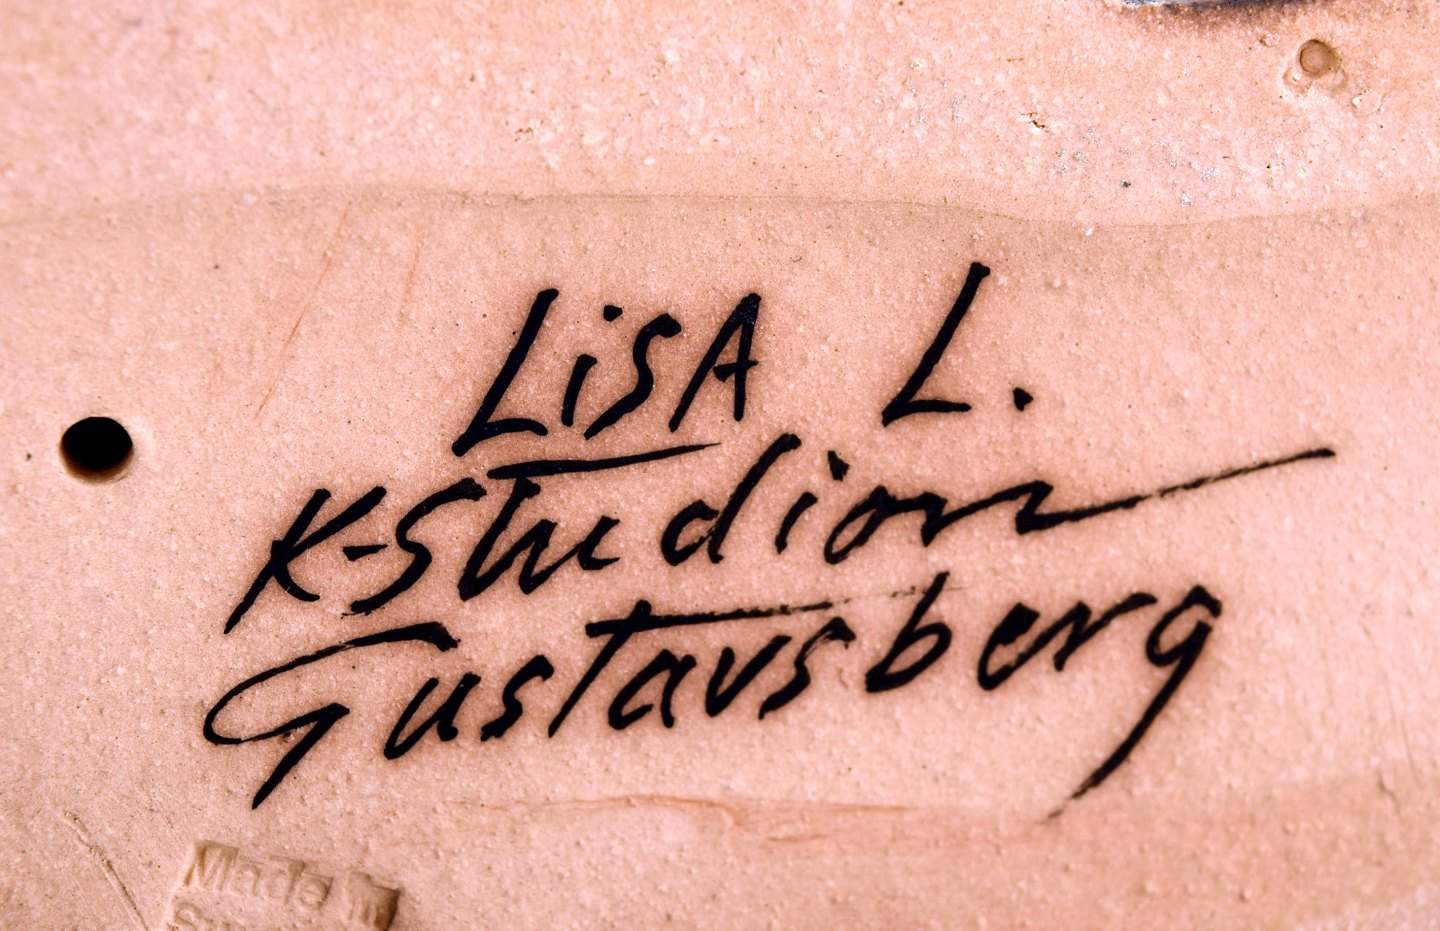 LiSA L.
K-Studion
Gustavsberg
Made in